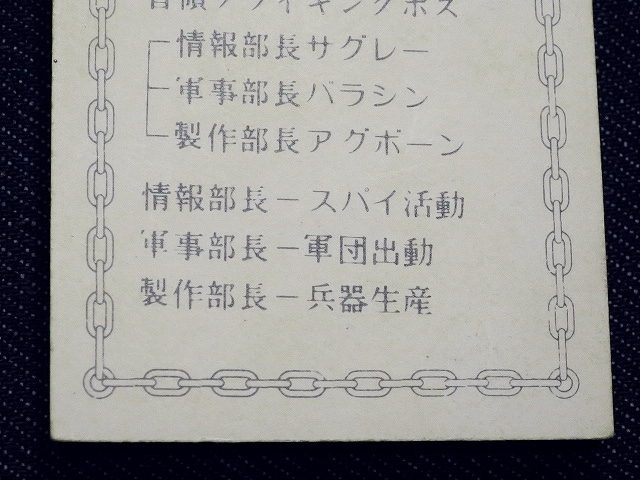 首領アンドロイキングボス
情報部長サグレー
軍事部長バラシン
製作部長アグボーン
情報部長ースパイ活動
軍事部長ー軍団出動
製作部長ー兵器生産